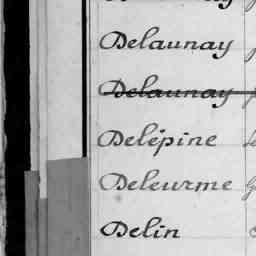 Delaunay
Delaunay
Delépine
Deleurme
Delin